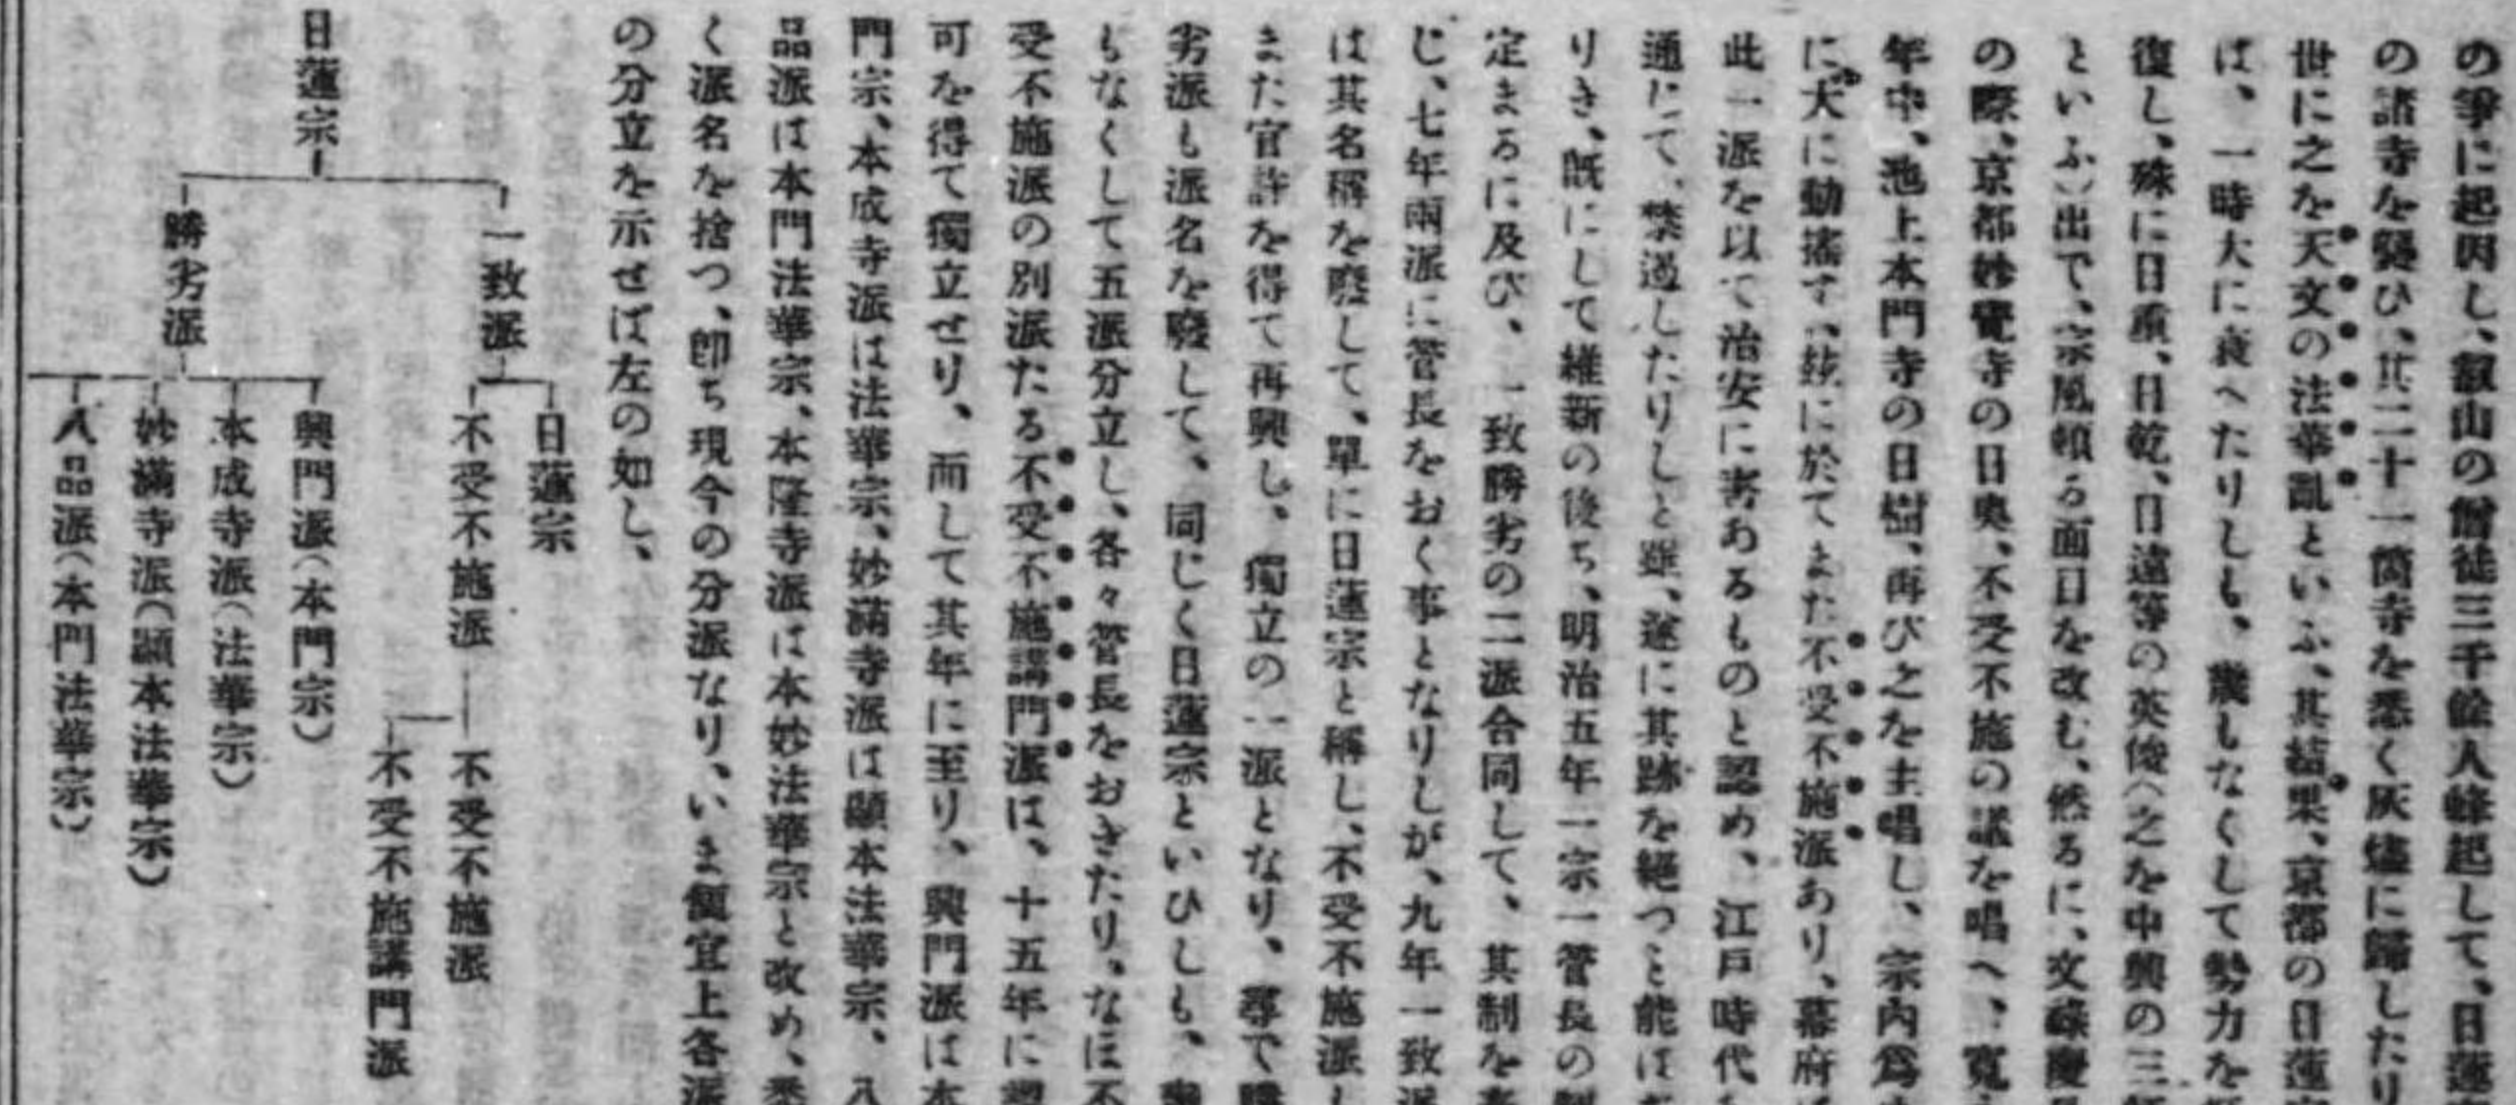 の爭に起因し、叡山の僧徒三千餘人蜂起して、日蓮
の諸寺を襲ひ、其二十一箇寺を悉く灰燼に歸したり
世に之を天文の法華亂といふ、其結果、京都の日蓮
ば、一時大に衰へたりしも、幾しなくして勢力を
復し、殊に日重、日乾、日遠等の英俊、之を中興の三
といふ出で、宗風頓る面目を改む、然るに、文祿慶
の際、京都妙覺寺の日奧、不受不施の議を唱へ、寬
年中、池上本門寺の日樹、再び之を主唱し、宗內爲
に大に動搖す、玆に於てまた不受不施派あり、幕府
此一派を以て治安に害あるものと認め、江戶時代
通じて、禁遏したりしと雖、遂に其跡を絕つこと能は
りき、既にして維新の後ち、明治五年一宗一管長の制
定まるに及び、一致勝劣の二派合同して、其制を
じ、七年兩派に管長をおく事となりしが、九年一致派
は其名稱を廢して、單に日蓮宗と稱し、不受不施派し
また官許を得て再興し、獨立の一派となり、尋で勝
劣派も派名を廢して、同じく日蓮宗といひしも、
もなくして五派分立し、各々管長をおきたり、なほ不
受不施派の別派たる不受不施講門派は、十五年に
可を得て獨立せり、而して其年に至り、興門派は本
門宗、本成寺派は法華宗、妙滿寺派は顯本法華宗、八
品派は本門法華宗、本隆寺派は本妙法華宗と改め、悉
く派名を捨つ、卽ち現今の分派なり、いま便宜上各派
の分立を示せば左の如し、
日蓮宗
一致派
日蓮宗
不受不施派
不受不施派
不受不施講門派
勝劣派
興門派(本門宗)
本成寺派(法華宗)
妙滿寺派(顯本法華宗)
八品派(本門法華宗)